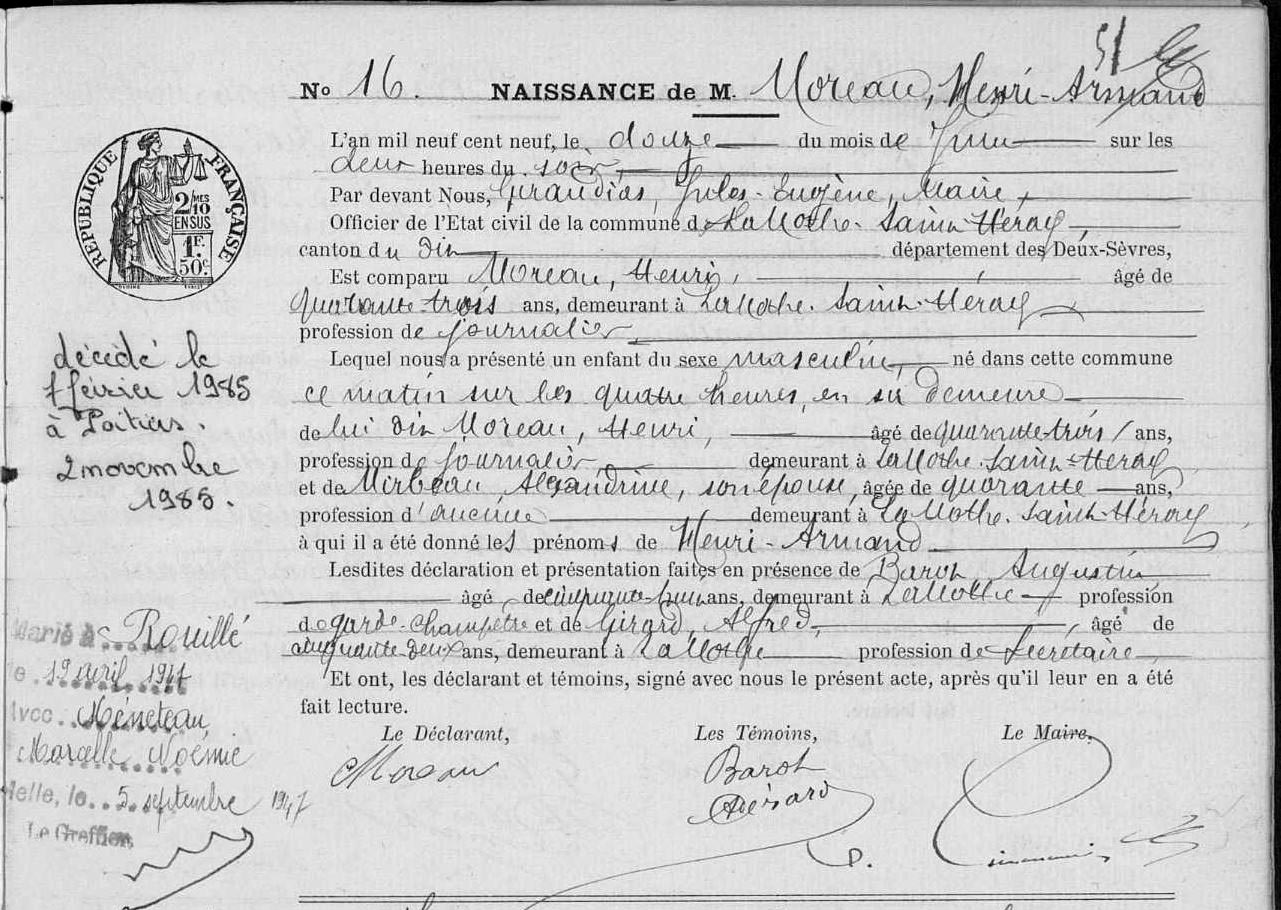 51
No 16. NAISSANCE de M. Moreau, Henri-Armand
L'an mil neuf cent neuf, le douze du mois de Juin sur les
deux heures du soir
Par devant Nous, Girandias, Jules-Eugène, Maire,
Officier de l'Etat civil de la commune de La Mothe-Saint-Héray,
canton du dit département des Deux-Sèvres,
Est comparu Moreau, Henri, âgé de
quarante-trois ans, demeurant à La Mothe-Saint-Héray
profession de journalier
Lequel nous a présenté un enfant du sexe masculin, né dans cette commune
ce matin sur les quatre heures, en sa demeure
de lui dit Moreau, Henri, âgé de quarante-trois ans,
profession de journalier, demeurant à La Mothe-Saint-Héray
et de Mirbeau, Alexandrine, son épouse, âgée de quarante ans,
profession d'aucune demeurant à La Mothe-Saint-Héray
à qui il a été donné les prénoms de Henri-Armand
Lesdites déclaration et présentation faites en présence de Barot, Augustin,
âgé de cinquante-huit ans, demeurant à La Mothe profession
de garde-champêtre et de Girard, Alfred, âgé de
cinquante-deux ans, demeurant à La Mothe profession de Secrétaire,
Et ont, les déclarant et témoins, signé avec nous le présent acte, après qu'il leur en a été
fait lecture.
Le Déclarant, Les Témoins, Le Maire.
Moreau Barot
AGirard
RÉPUBLIQUE FRANÇAISE
2/MES
10
EN SUS
1F.
50c
décédé le
1 février 1985
à Poitiers.
2 novembre
1985.
Marié à Rouillé
le 19 avril 1947
Avec Méneteau,
Marcelle Noémie
Melle, le 5 septembre 1947
Le Greffier